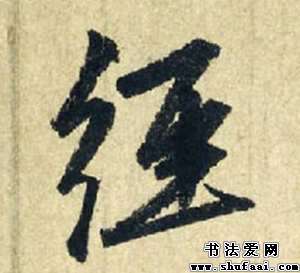 經
书法爱网
www.shufaai.com